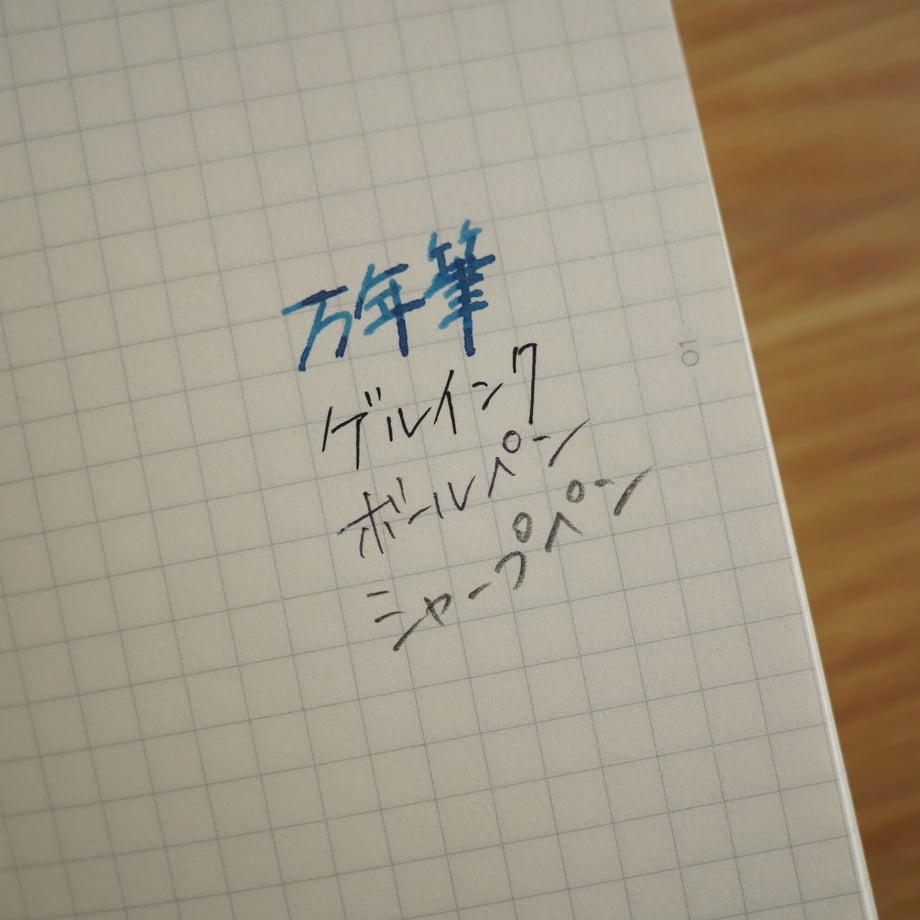 万年筆
ゲルインク
ボールペン
シャープペン
01